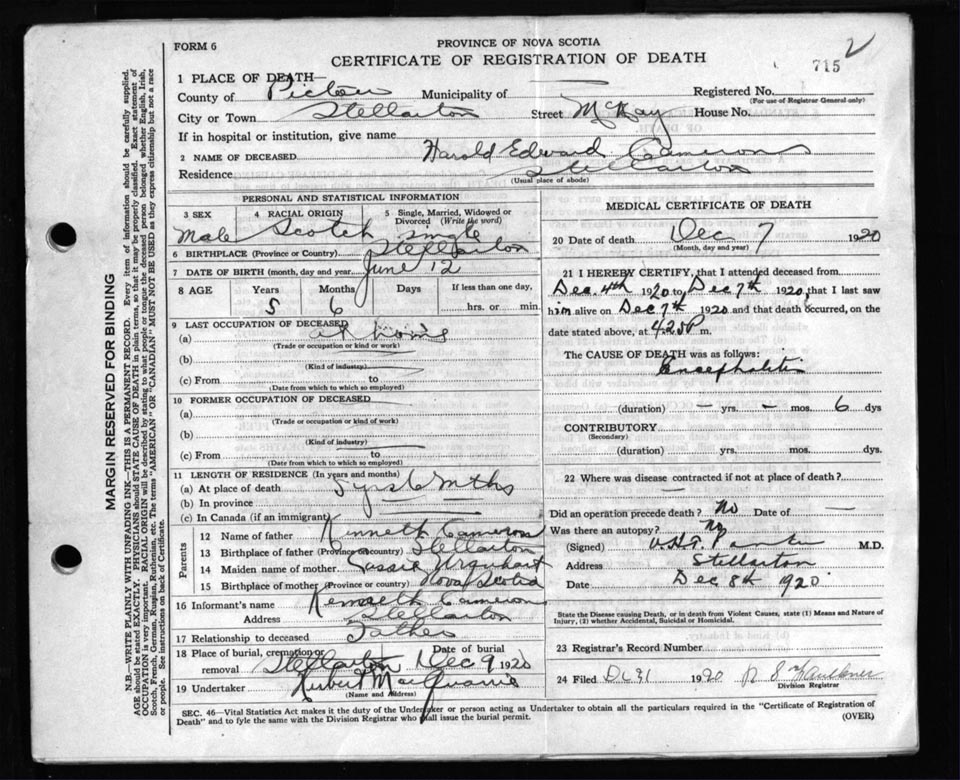 FORM 6
PROVINCE OF NOVA SCOTIA
CERTIFICATE OF REGISTRATION OF DEATH
715
2
1 PLACE OF DEATH—
County of Pictou Municipality of — Registered No.
(For use of Registrar General only)
City or Town Stellarton Street McKay House No.
If in hospital or institution, give name
2 NAME OF DECEASED Harold Edward Cameron
Residence Stellarton
(Usual place of abode)
PERSONAL AND STATISTICAL INFORMATION
3 SEX Male
4 RACIAL ORIGIN Scotch
5 Single, Married, Widowed or Divorced (Write the word) single
6 BIRTHPLACE (Province or Country) Stellarton
7 DATE OF BIRTH (month, day and year) June 12
8 AGE Years Months Days If less than one day,
5 6 hrs. or min.
9 LAST OCCUPATION OF DECEASED
(a) at home
(Trade or occupation or kind or work)
(b)
(Kind of industry)
(c) From to
(Date from which to which so employed)
10 FORMER OCCUPATION OF DECEASED
(a)
(Trade or occupation or kind of work)
(b)
(Kind of industry)
(c) From to
(Date from which to which so employed)
11 LENGTH OF RESIDENCE (In years and months)
(a) At place of death 5 yrs 6 mths
(b) In province
(c) In Canada (if an immigrant)
Parents
12 Name of father Kenneth Cameron
13 Birthplace of father (Province or country) Stellarton
14 Maiden name of mother Urquhart
15 Birthplace of mother (Province or country) Nova Scotia
16 Informant's name Kenneth Cameron
Address Stellarton
17 Relationship to deceased Father
18 Place of burial, cremation or removal Stellarton Date of burial Dec 9 1920
19 Undertaker MacQuarrie
(Name and Address)
MEDICAL CERTIFICATE OF DEATH
20 Date of death Dec 7 1920
(Month, day and year)
21 I HEREBY CERTIFY, that I attended deceased from
Dec. 4th 1920 to Dec 7th 1920, that I last saw
him alive on Dec 7th 1920 and that death occurred, on the
date stated above, at 4.20 P m.
The CAUSE OF DEATH was as follows:
Encephalitis
(duration) — yrs. — mos. 6 dys
CONTRIBUTORY
(Secondary)
(duration) yrs. mos. dys.
22 Where was disease contracted if not at place of death?
Did an operation precede death? No Date of —
Was there an autopsy? No
(Signed) M.D.
Address Stellarton
Date Dec 8th 1920
State the Disease causing Death, or in death from Violent Causes, state (1) Means and Nature of
Injury, (2) whether Accidental, Suicidal or Homicidal.
23 Registrar's Record Number
24 Filed Dc 31 1920
Division Registrar
SEC. 46—Vital Statistics Act makes it duty of the Undertaker or person acting as Undertaker to obtain all the particulars required in the "Certificate of Registration of
Death" and to fyle the same with the Division Registrar who shall issue the burial permit. (OVER)
MARGIN RESERVED FOR BINDING
N.B.—WRITE PLAINLY WITH UNFADING INK—THIS IS A PERMANENT RECORD. Every item of information should be carefully supplied.
AGE should be stated EXACTLY. PHYSICIANS should STATE CAUSE OF DEATH in plain terms, so that it may be properly classified. Exact statement of
OCCUPATION is very important. RACIAL ORIGIN will be described by stating to what people or tongue the deceased person belonged whether English, Irish,
Scotch, French, German, Russian, Ruthenian, etc. The terms "AMERICAN" OR "CANADIAN" MUST NOT BE USED as they express citizenship but not a race
or people. See instructions on back of Certificate.